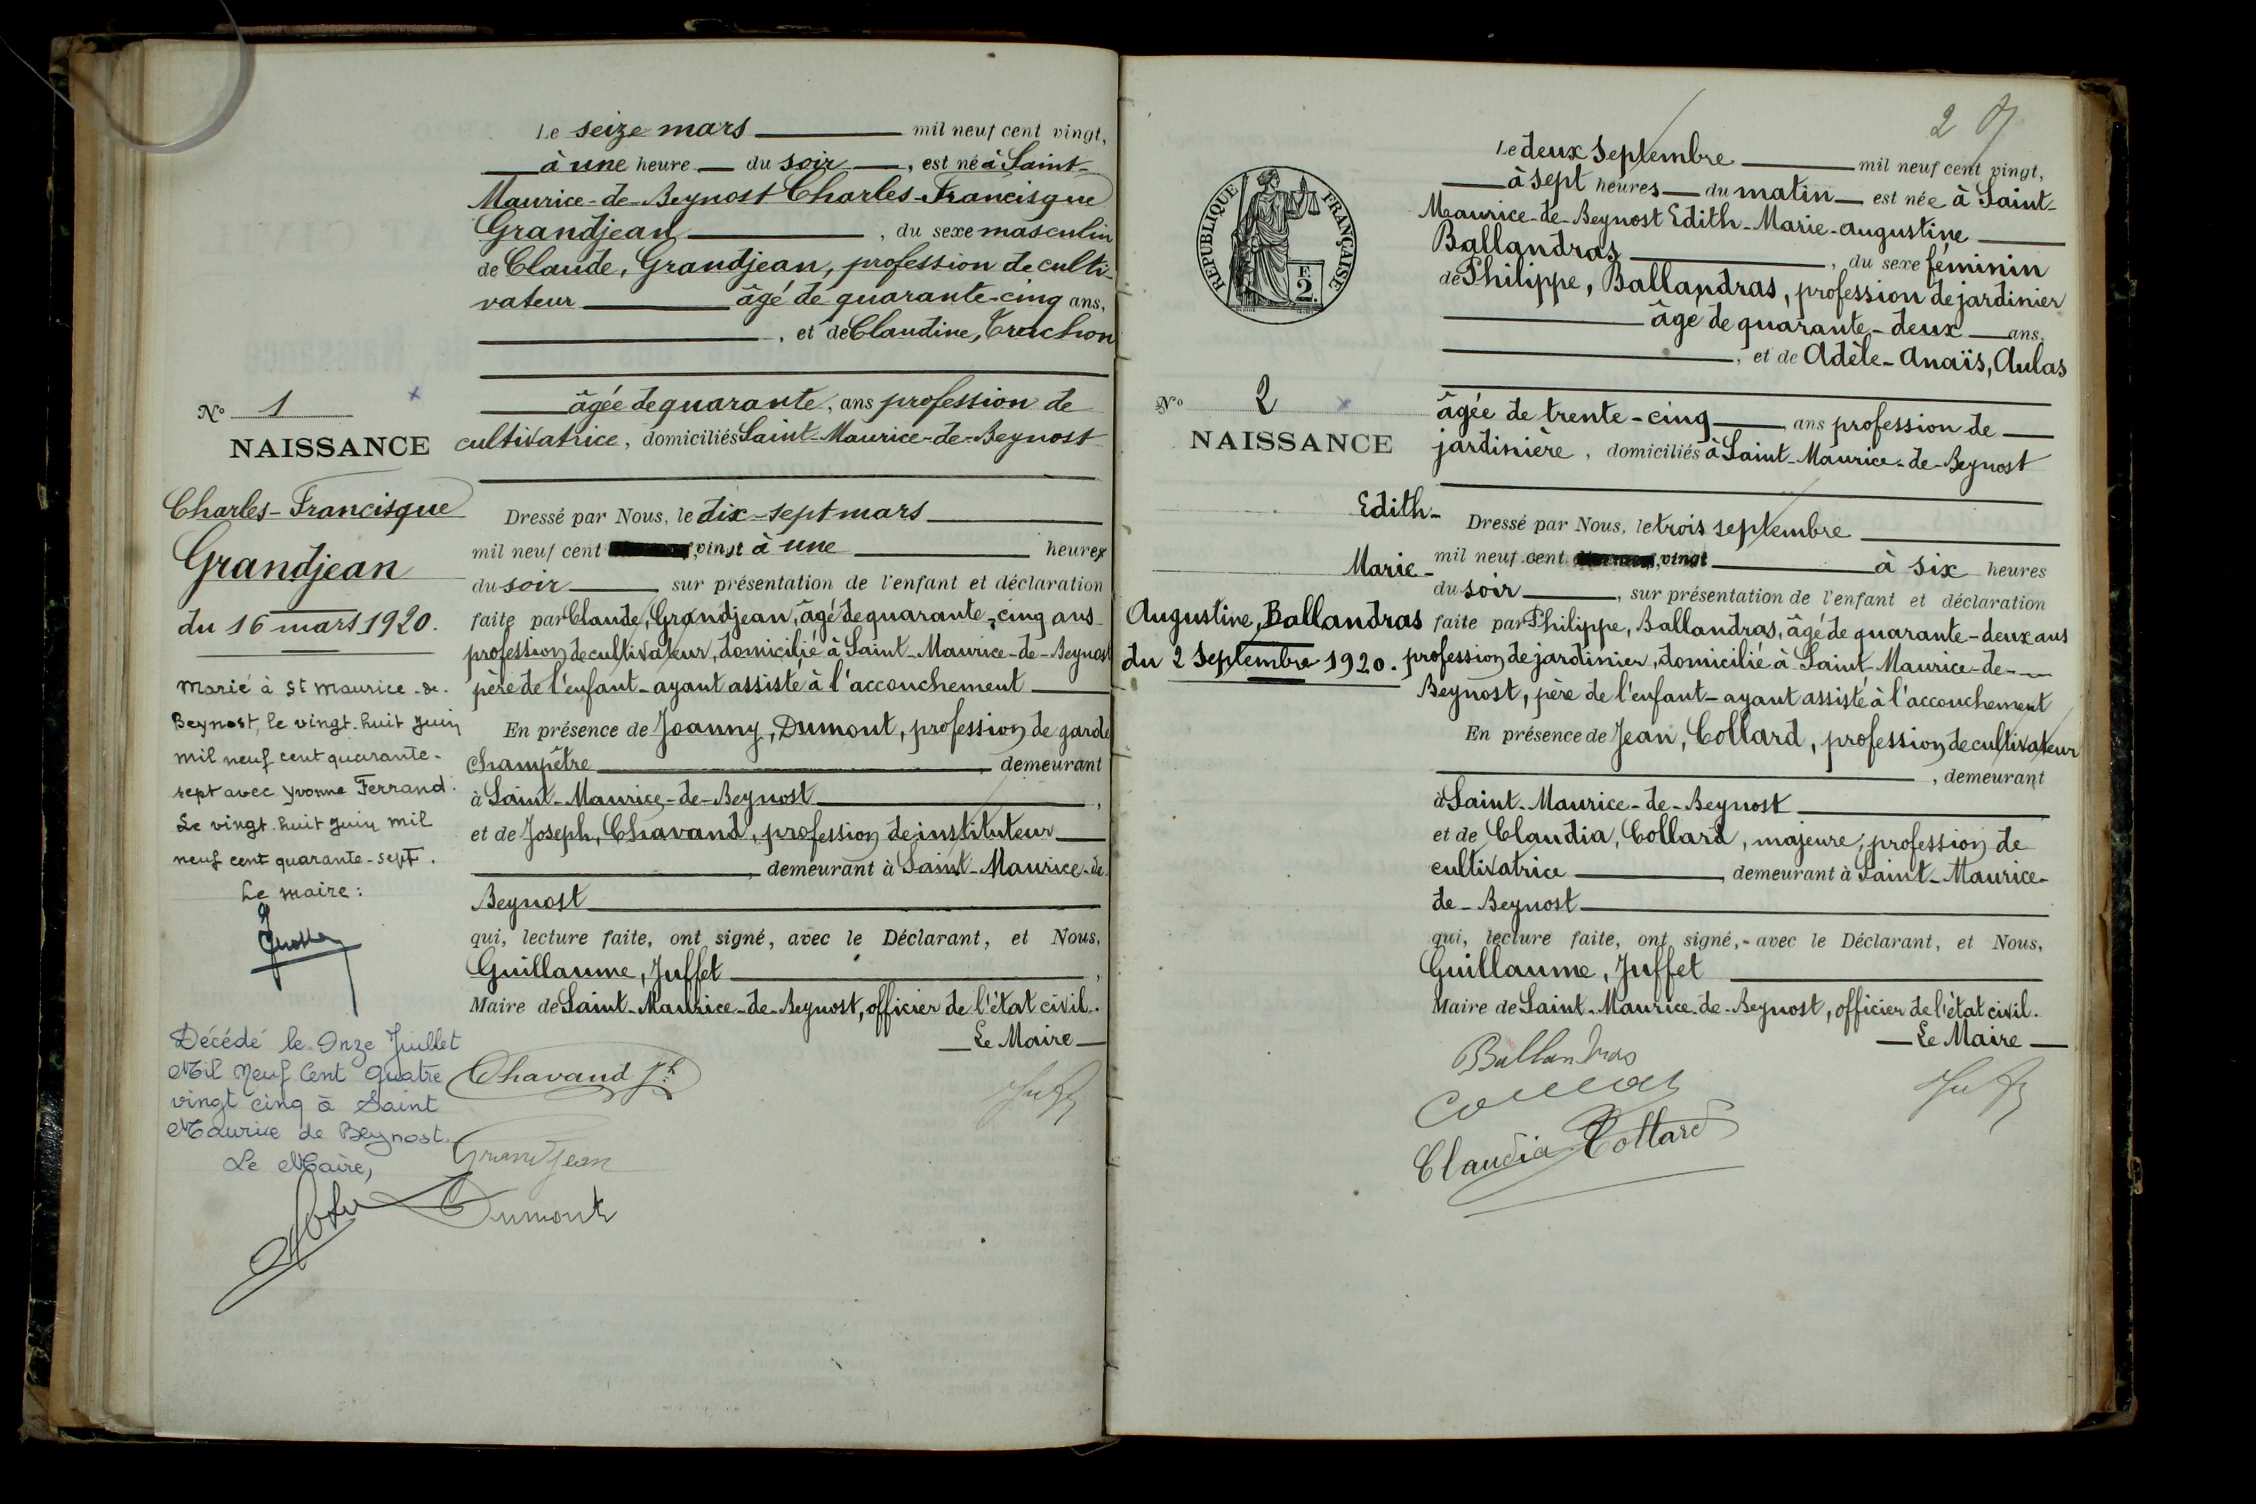 Le seize mars mil neuf cent vingt,
à une heure du soir, est né à Saint-
Maurice-de-Beynost Charles-Francisque
Grandjean, du sexe masculin
de Claude, Grandjean, profession de culti-
vateur âgé de quarante-cinq ans,
, et de Claudine, Truchon
Nº 1
âgée de quarante, ans profession de
NAISSANCE
cultivatrice, domiciliés Saint-Maurice-de-Beynost
Charles-Francisque
Grandjean
du 16 mars 1920.
Dressé par Nous, le dix-sept mars
mil neuf cent vingt à une heures
du soir, sur présentation de l'enfant et déclaration
faite par Claude, Grandjean, âgé de quarante-cinq ans
profession de cultivateur, domicilié à Saint-Maurice-de-Beynost
père de l'enfant-ayant assisté à l'accouchement
Marié à St Maurice-de-
Beynost, le vingt-huit juin
mil neuf cent quarante-
sept avec Yvonne Ferrand.
Le vingt-huit juin mil
neuf cent quarante-sept.
Le maire:
En présence de Joanny, Dumont, profession de garde
champêtre demeurant
à Saint-Maurice-de-Beynost,
et de Joseph, Chavand, profession de instituteur
, demeurant à Saint-Maurice-de
Beynost
qui, lecture faite, ont signé, avec le Déclarant, et Nous,
Guillaume, Juffet,
Maire de Saint-Maurice-de-Beynost, officier de l'état civil.
Le Maire
Décédé le Onze Juillet
Mil Neuf Cent Quatre
vingt cinq à Saint
Maurice de Beynost.
Le Maire,
Chavand Jh
Grandjean
Dumont
2
Le deux septembre mil neuf cent vingt,
à sept heures du matin est née à Saint-
Maurice-de-Beynost Edith-Marie-Augustine
Ballandras, du sexe féminin
de Philippe, Ballandras, profession de jardinier
âge de quarante-deux ans,
, et de Adèle-Anaïs, Aulas
RÉPUBLIQUE FRANÇAISE
F.
2.
Nº 2
NAISSANCE
âgée de trente-cinq ans profession de
jardinière, domiciliés à Saint-Maurice-de-Beynost
Edith-
Marie-
Augustine, Ballandras
du 2 Septembre 1920.
Dressé par Nous, le trois septembre
mil neuf cent vingt à six heures
du soir, sur présentation de l'enfant et déclaration
faite par Philippe, Ballandras, âgé de quarante-deux ans
profession de jardinier, domicilié à Saint-Maurice-de-
Beynost, père de l'enfant-ayant assisté à l'accouchement
En présence de Jean, Collard, profession de cultivateur
, demeurant
à Saint-Maurice-de-Beynost
et de Claudia, Collard, majeure, profession de
cultivatrice, demeurant à Saint-Maurice-
de-Beynost
qui, lecture faite, ont signé, avec le Déclarant, et Nous,
Guillaume, Juffet
Maire de Saint-Maurice-de-Beynost, officier de l'état civil.
Le Maire
Ballandras
Claudia Collard